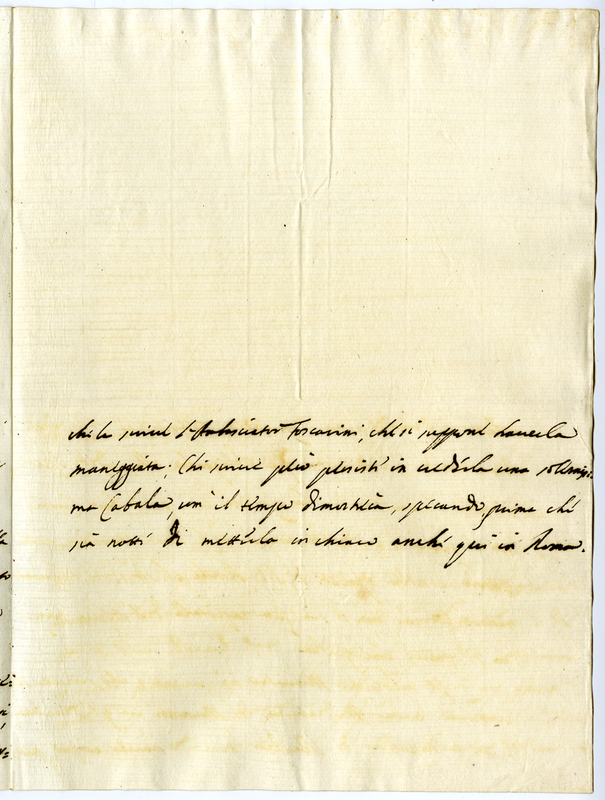 che le scrive l'Ambasciator Foscarini, che si suppone haverla
maneggiata; Chi scrive però persiste in crederla una solenissi-
ma Cabala, com' il tempo dimostrerà, sperando, prima che
sia notte di metterla in chiaro anche quì in Roma.